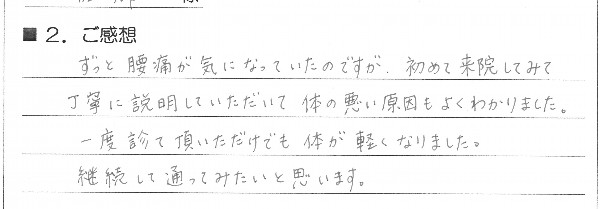 様
■ 2. ご感想
ずっと腰痛が気になっていたのですが、初めて来院してみて
丁寧に説明していただいて体の悪い原因もよくわかりました。
一度診て頂いただけでも体が軽くなりました。
継続して通ってみたいと思います。